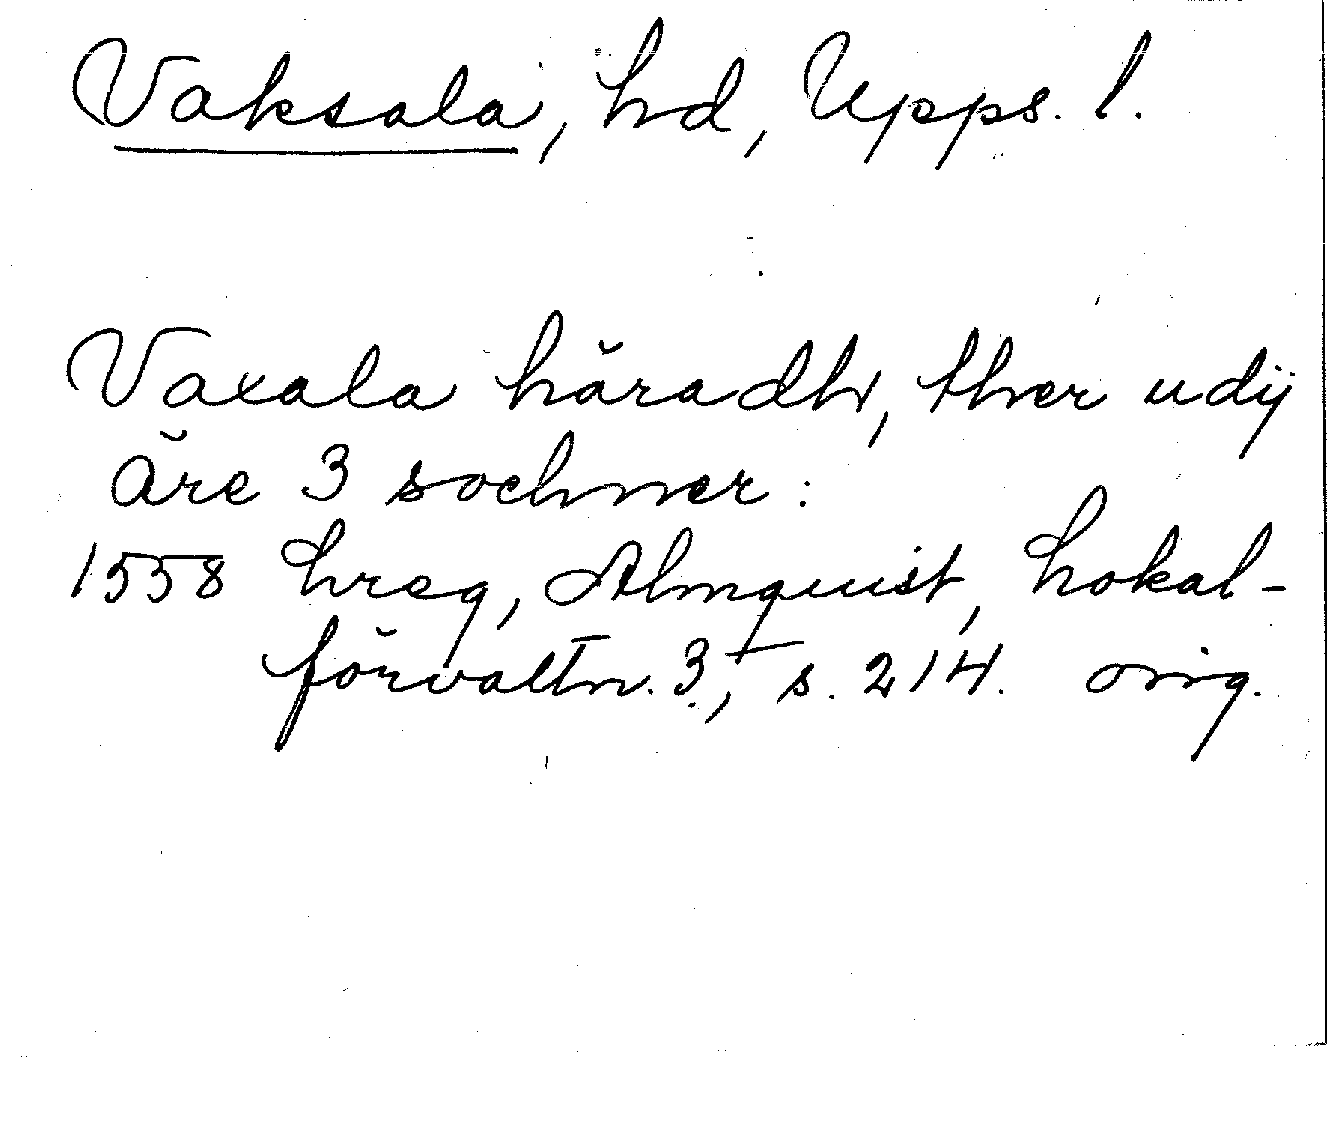 Vaksala, hd, Upps. l.
Vaxala häradh, ther udij
äre 3 sochner:
1558 hreg, Almquist, Lokal-
förvaltn. 3, s. 214. orig.